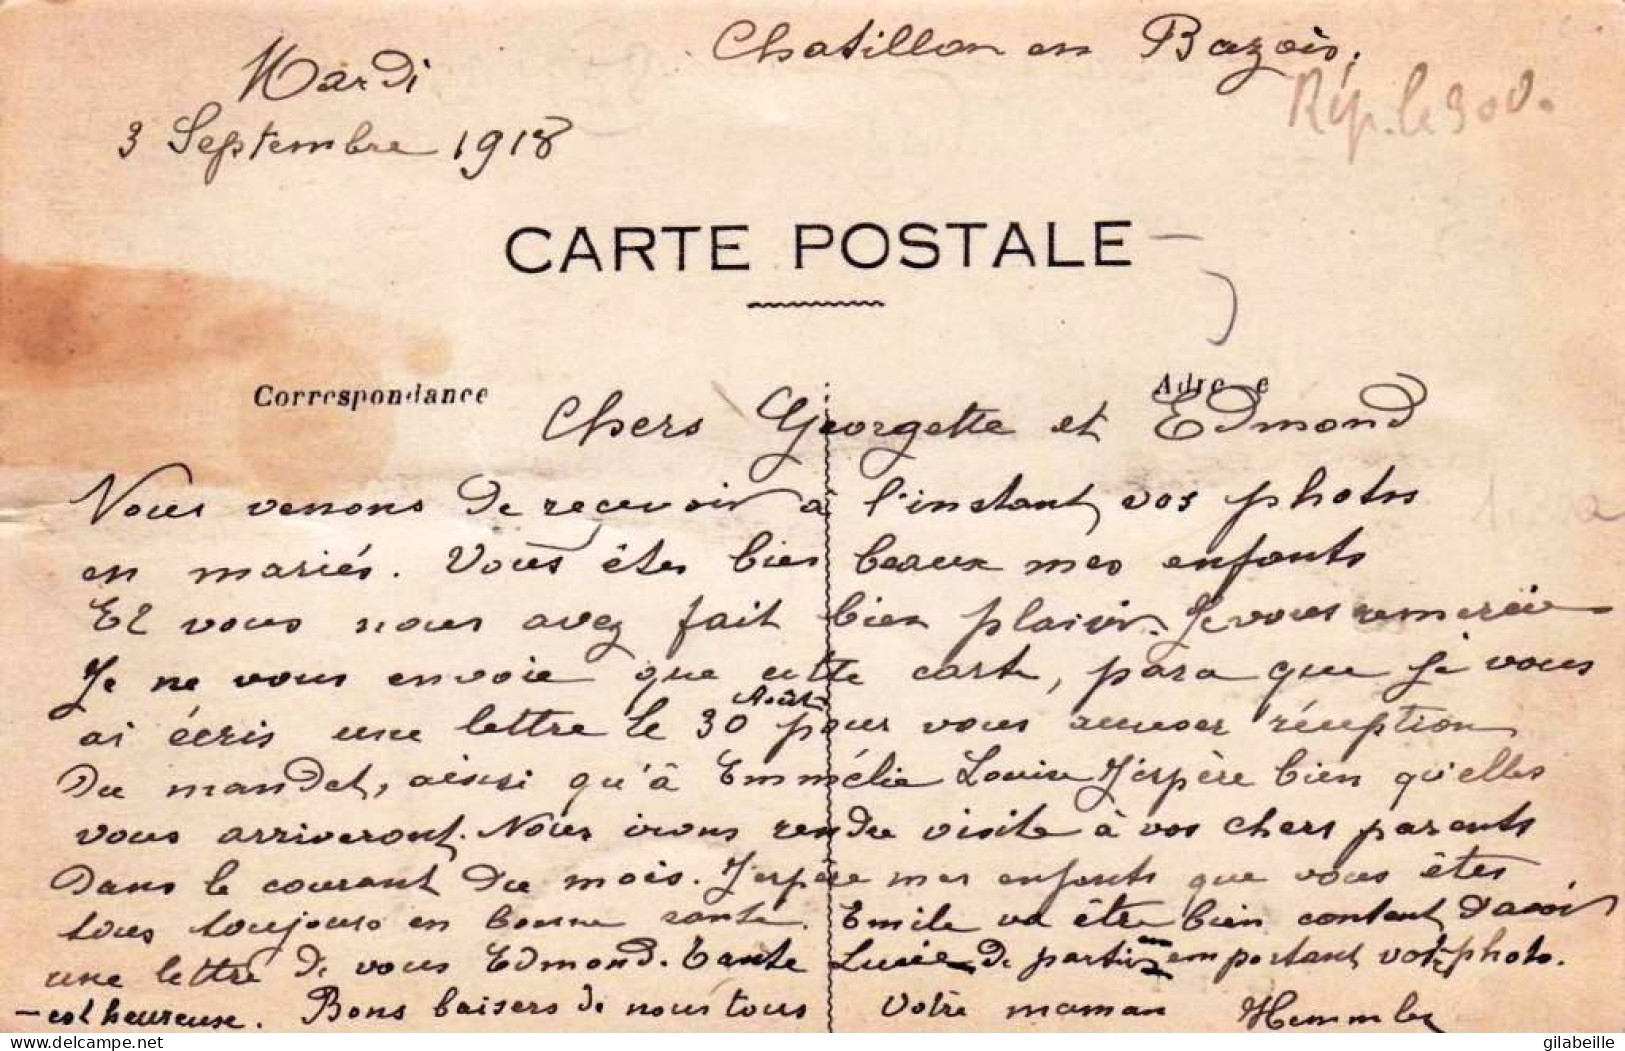 Chatillon en Bazois,
Mardi
3 Septembre 1918
Rép. le 9
CARTE POSTALE
Correspondance
Adre e
Chers Georgette et Edmond
Nous venons de recevoir à l'instant vos photos
en mariés. Vous êtes bien beaux mes enfants
Et vous nous avez fait bien plaisir. Je vous remercie
Je ne vous envoie que cette carte, parce que je vous
ai écris une lettre le 30 Août pour vous accuser réception
du mandat, ainsi qu'à Emmélie Louise J'espère bien qu'elles
vous arriveront. Nous irons rendre visite à vos chers parents
dans le courant du mois. J'espère mes enfants que vous êtes
tous toujours en bonne santé. Emile va être bien content d'avoir
une lettre de vous Edmond. Tante Lucie de partir en emportant votre photo.
- est heureuse. Bons baisers de nous tous Votre maman
gilabeille